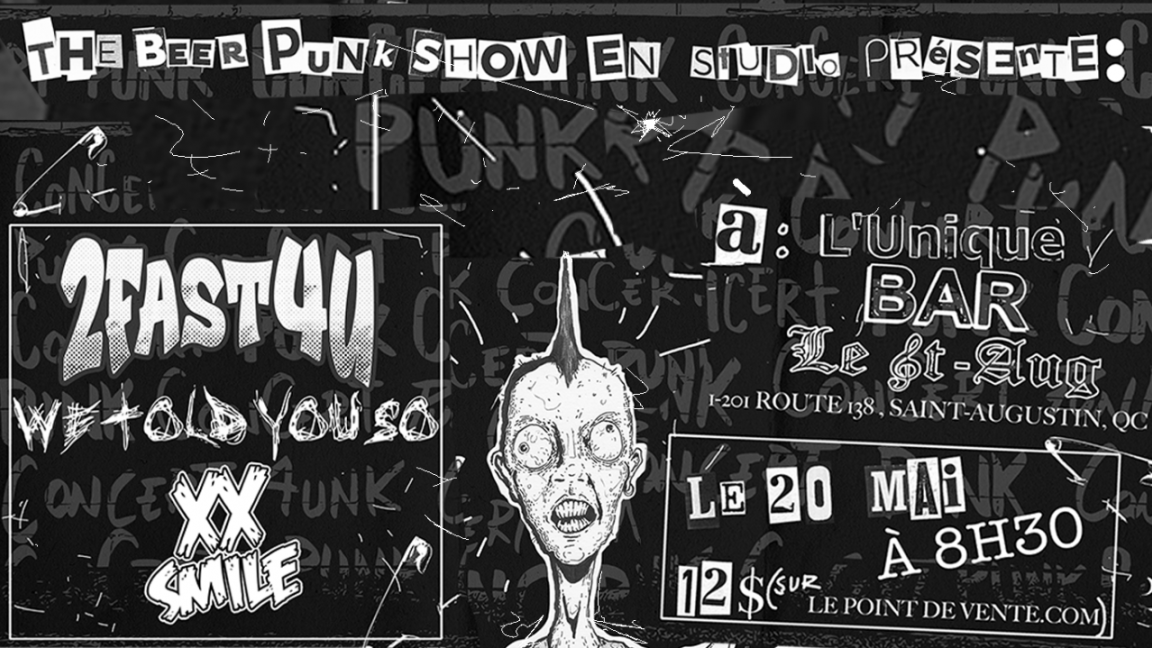 THE BEER PUNK SHOW EN STUDIO PRÉSENTE:
2FAST4U
WE TOLD YOU SO
XX
SMILE
à: L'Unique
BAR
Le St-Aug
1-201 ROUTE 138, SAINT-AUGUSTIN, QC
LE 20 MAI
À 8H30
12 $(SUR
LE POINT DE VENTE.COM)